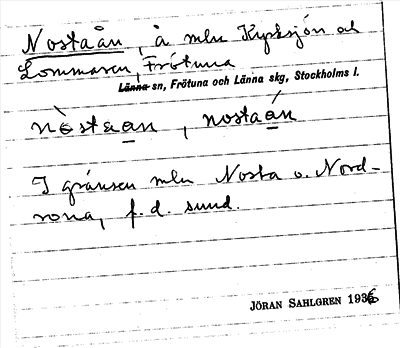 Nostaån, å mln Kyrksjön och
Lommaren, Frötuna
Länna sn, Frötuna och Länna skg, Stockholms l.
nòstaan, nostaán
I gränsen mln Nosta o. Nord-
rona, f.d. sund.
JÖRAN SAHLGREN 1936